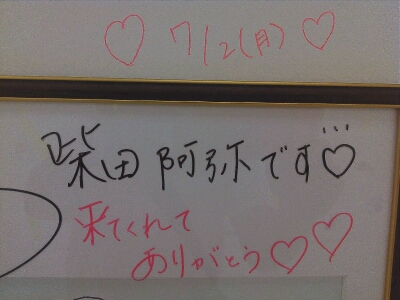 ♡ 7/2(月) ♡
柴田阿弥です♡
来てくれて
ありがとう♡♡